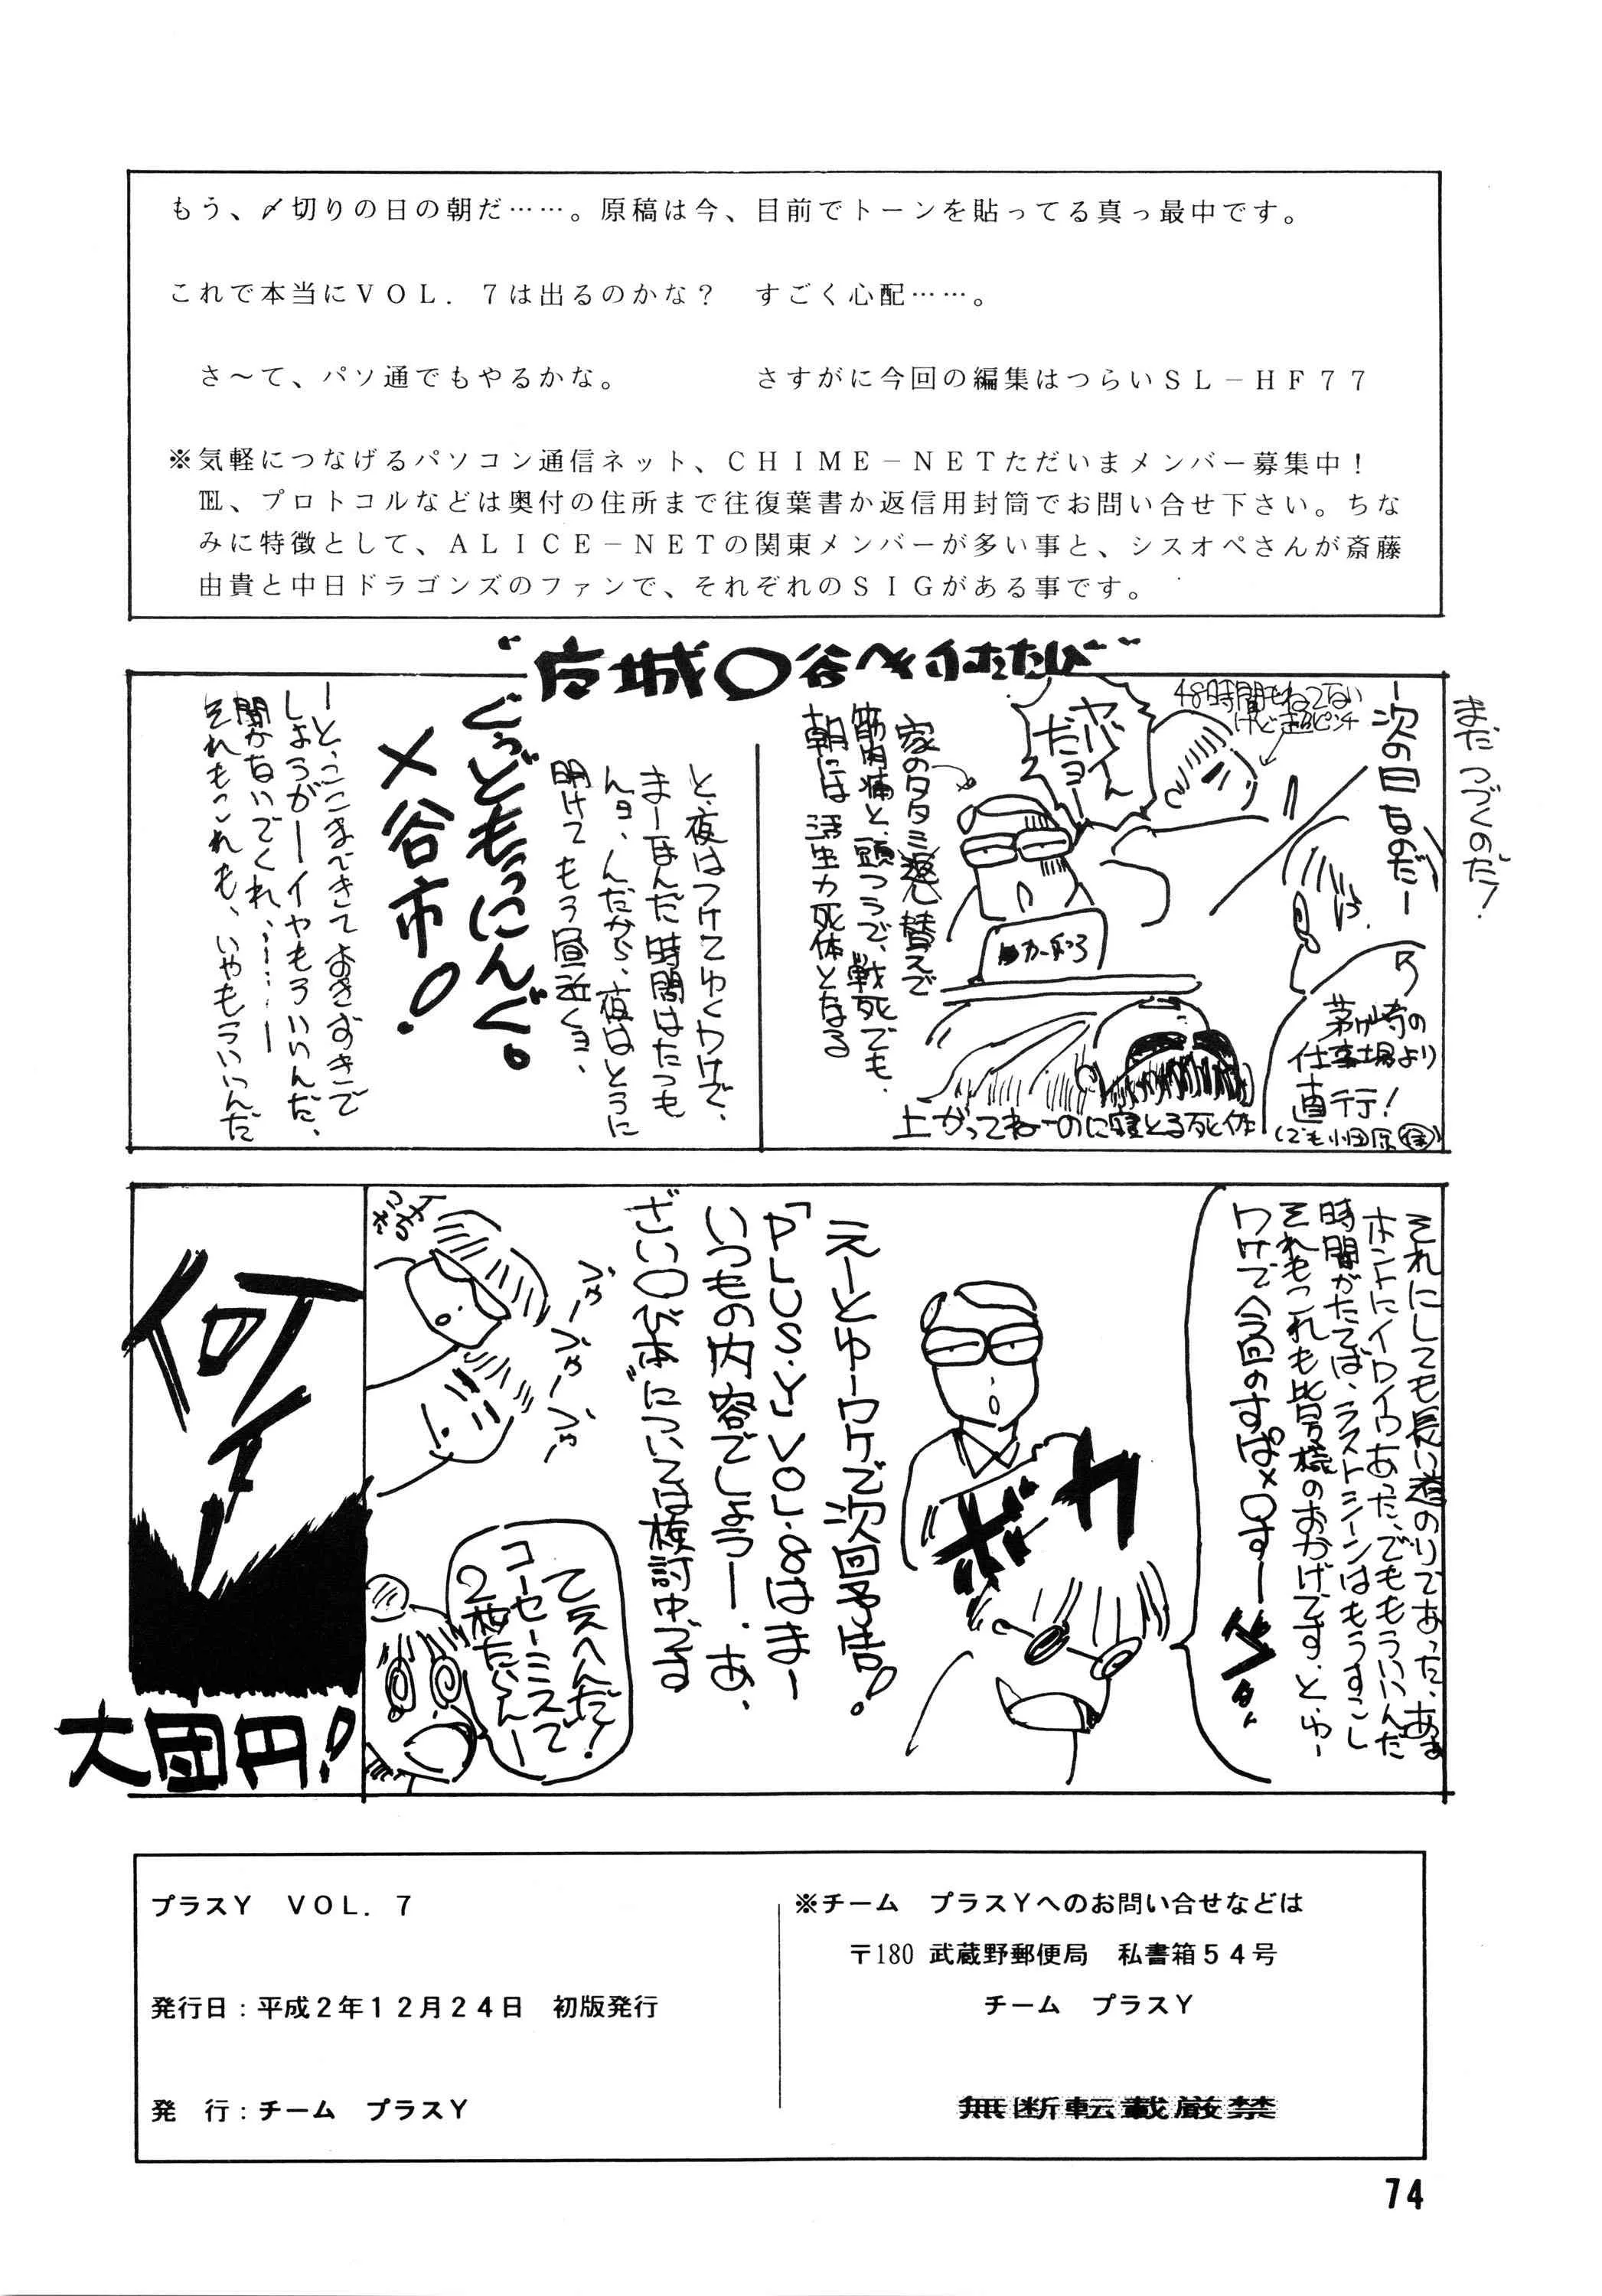 もう、〆切りの日の朝だ……。原稿は今、目前でトーンを貼ってる真っ最中です。
これで本当にＶＯＬ．７は出るのかな？　すごく心配……。
さ〜て、パソ通でもやるかな。　さすがに今回の編集はつらいＳＬ－ＨＦ７７
※気軽につなげるパソコン通信ネット、ＣＨＩＭＥ－ＮＥＴただいまメンバー募集中！
℡、プロトコルなどは奥付の住所まで往復葉書か返信用封筒でお問い合せ下さい。ちな
みに特徴として、ＡＬＩＣＥ－ＮＥＴの関東メンバーが多い事と、シスオペさんが斎藤
由貴と中日ドラゴンズのファンで、それぞれのＳＩＧがある事です。
まだつづくのだ！
ー次の日なのだー
48時間もねてない
けど超ピンチ
ヤバイん
だヨー
茅ヶ崎の
仕事場より
直行！
家のタタミ返し替えで
筋肉痛と、頭つうで、戦死でも、
朝には活生力死体となる
上がってねーのに寝とる死体
と、夜はつけてゆくわけで、
まーほんだ時間はたつも
んヨ、んだから、夜はとうに
明けてもう昼近くヨ、
ぐっどもっにんぐ。
〆谷市！
ーと、ここまできておきずきで
しょうがーイヤもういいんだ、
聞かないでくれ、……ー
それもこれも、いやもういいんだ
それにしても長い道のりであった、ああ
ホントにイロイロあった、でももういいんだ
時間がたてば、ラストシーンはもうすこし
それもこれも皆様のおかげです、と、ゆー
ワけで今回のすぱ〆〇すー
ボカ
えーとゆーワケで次回予告！
「PLUS・Y」VOL.8はまー
いつもの内容でしょうー、あ、
ざい〇ぴ本については検討中でる
乙えへんだ！
コーセーミスで
2枚たらんー
何ィー
大団円！
プラスＹ　ＶＯＬ．７
発行日：平成２年１２月２４日　初版発行
発　行：チーム　プラスＹ
※チーム　プラスＹへのお問い合せなどは
〒180 武蔵野郵便局　私書箱５４号
チーム　プラスＹ
無断転載厳禁
74